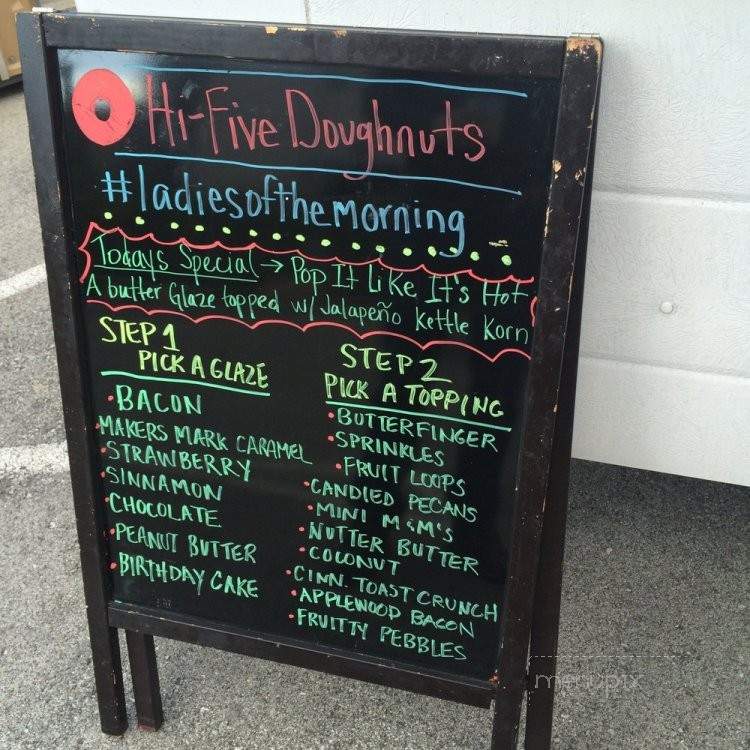 Hi-Five Doughnuts
#ladiesofthemorning
Todays Special → Pop It Like It's Hot
A butter Glaze topped w/ Jalapeño Kettle Korn
STEP 1
PICK A GLAZE
• BACON
• MAKERS MARK CARAMEL
• STRAWBERRY
• SINNAMON
• CHOCOLATE
• PEANUT BUTTER
• BIRTHDAY CAKE
STEP 2
PICK A TOPPING
• BUTTERFINGER
• SPRINKLES
• FRUIT LOOPS
• CANDIED PECANS
• MINI M&M'S
• NUTTER BUTTER
• COCONUT
• CINN. TOAST CRUNCH
• APPLEWOOD BACON
• FRUITTY PEBBLES
menupix